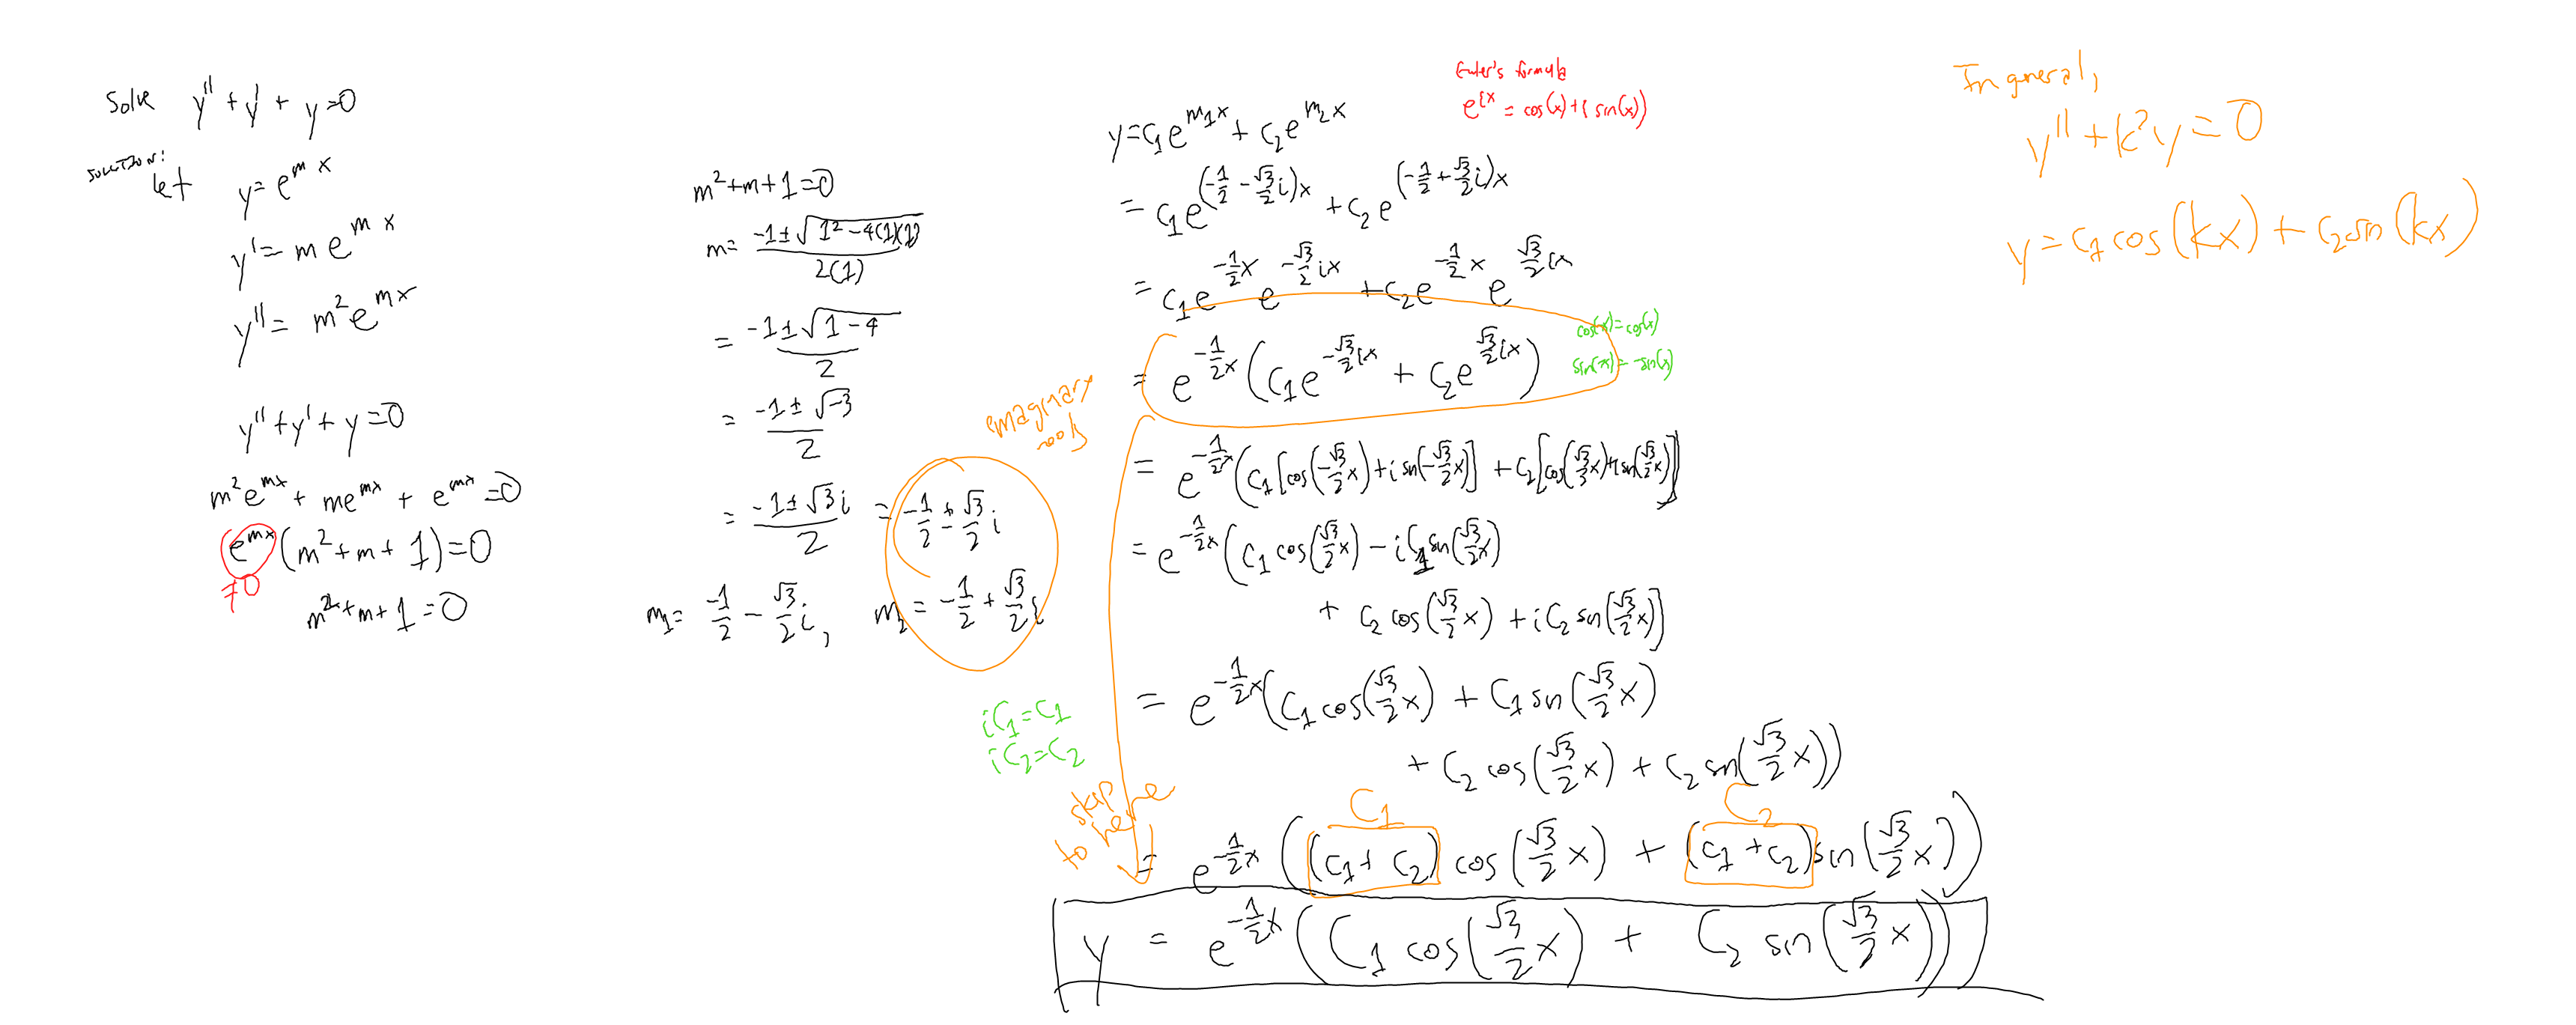 Solve y'' + y' + y = 0
SOLUTION:
let y = e^{mx}
y' = me^{mx}
y'' = m^2 e^{mx}
y'' + y' + y = 0
m^2 e^{mx} + me^{mx} + e^{mx} = 0
e^{mx} (m^2 + m + 1) = 0
≠0
m^2 + m + 1 = 0
m^2 + m + 1 = 0
m = \frac{-1 ± √(1^2 - 4(1)(1))}{2(1)}
= \frac{-1 ± √(1 - 4)}{2}
= \frac{-1 ± √-3}{2}
= \frac{-1 ± √3 i}{2} = -\frac{1}{2} ± \frac{√3}{2} i
emaginary
roots
m_1 = \frac{-1}{2} - \frac{√3}{2} i, m_2 = -\frac{1}{2} + \frac{√3}{2} i
Euler's formula
e^{ix} = cos(x) + i sin(x))
y = c_1 e^{m_1 x} + c_2 e^{m_2 x}
= c_1 e^{(-\frac{1}{2} - \frac{√3}{2} i)x} + c_2 e^{(-\frac{1}{2} + \frac{√3}{2} i)x}
= c_1 e^{-\frac{1}{2}x} e^{-\frac{√3}{2} ix} + c_2 e^{-\frac{1}{2}x} e^{\frac{√3}{2} ix}
cos(-x) = cos(x)
sin(-x) = -sin(x)
= e^{-\frac{1}{2}x} (c_1 e^{-\frac{√3}{2} ix} + c_2 e^{\frac{√3}{2} ix})
= e^{-\frac{1}{2}x} (c_1 [cos(-\frac{√3}{2}x) + i sin(-\frac{√3}{2}x)] + c_2 [cos(\frac{√3}{3}x) + i sin(\frac{√3}{2}x)])
= e^{-\frac{1}{2}x} (c_1 cos(\frac{√3}{2}x) - i c_1 sin(\frac{√3}{2}x)
+ c_2 cos(\frac{√3}{2}x) + i c_2 sin(\frac{√3}{2}x)]
iC_1 = C_1
iC_2 = C_2
= e^{-\frac{1}{2}x} (c_1 cos(\frac{√3}{2}x) + c_1 sin(\frac{√3}{2}x)
+ c_2 cos(\frac{√3}{2}x) + c_2 sin(\frac{√3}{2}x))
skip
to here
C_1 C_2
= e^{-\frac{1}{2}x} ((c_1 + c_2) cos(\frac{√3}{2}x) + (c_1 + c_2) sin(\frac{√3}{2}x))
y = e^{-\frac{1}{2}x} (C_1 cos(\frac{√3}{2}x) + C_2 sin(\frac{√3}{2}x))
In general,
y'' + k^2 y = 0
y = c_1 cos(kx) + c_2 sin(kx)